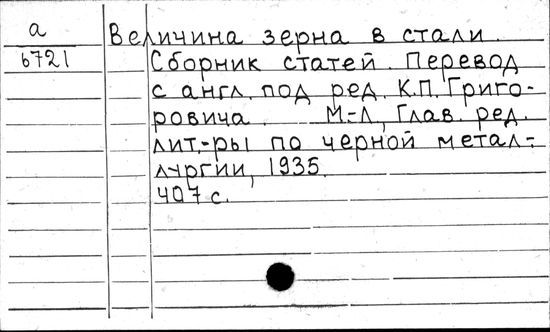 а Величина зерна в стали.
6721 Сборник статей. Перевод
с англ. под ред. К.П. Григо-
ровича. М.-Л, Глав. ред.
лит.-ры по черной метал-
лургии, 1935.
407 с.